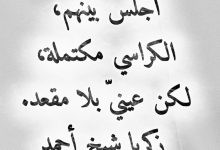 أجلس بينهم،
الكراسي مكتملة،
لكن عينيّ بلا مقعد.
زكريا شيخ أحمد